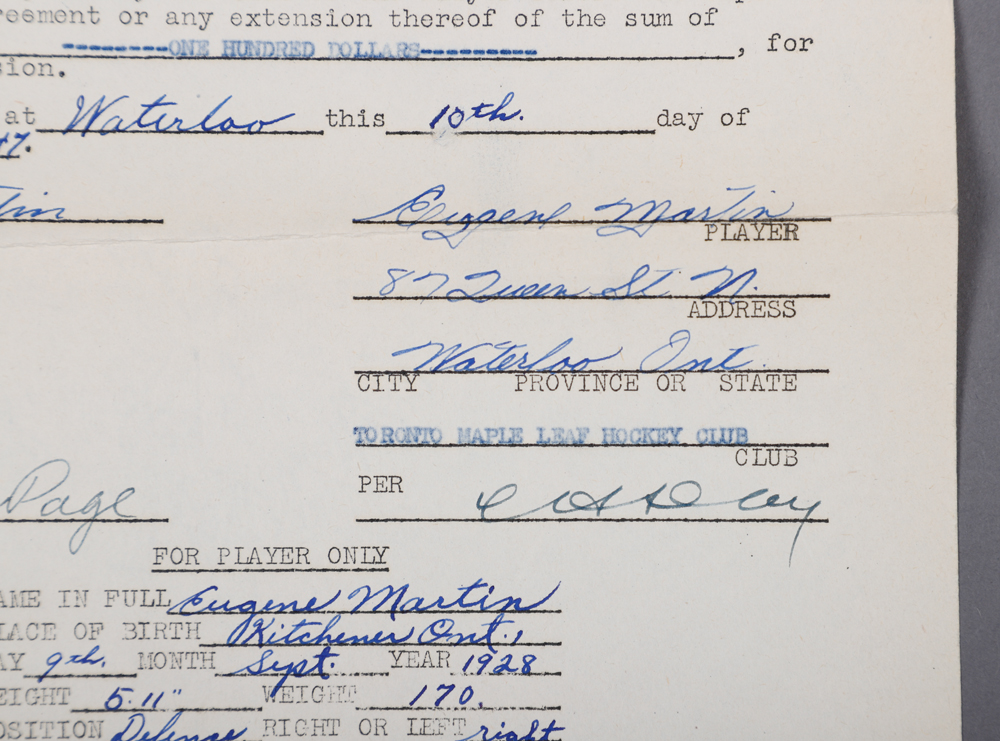 reement or any extension thereof of the sum of
--------ONE HUNDRED DOLLARS---------, for
sion.
at Waterloo this 10th. day of
47.
tin Eugene Martin
PLAYER
87 Queen St. N.
ADDRESS
Waterloo Ont.
CITY PROVINCE OR STATE
TORONTO MAPLE LEAF HOCKEY CLUB
CLUB
Page PER
FOR PLAYER ONLY
AME IN FULL Eugene Martin
LACE OF BIRTH Kitchener Ont.,
AY 9th. MONTH Sept. YEAR 1928
EIGHT 5.11" WEIGHT 170.
OSITION Defence RIGHT OR LEFT right